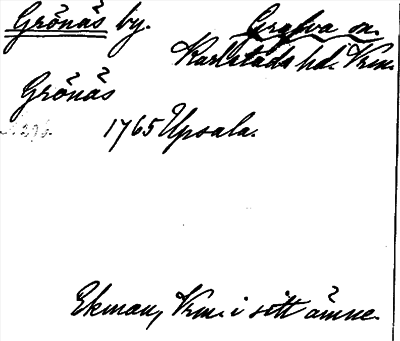 Grönäs by. Grafva sn.
Karlstads hd. Vrm.
Grönäs
1765 Upsala.
Ekman, Vrm. i sitt ämne.